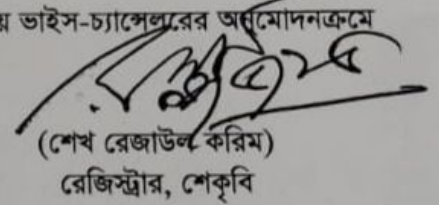 ভাইস-চ্যান্সেলরের অনুমোদনক্রমে
(শেখ রেজাউল করিম)
রেজিস্ট্রার, শেকৃবি